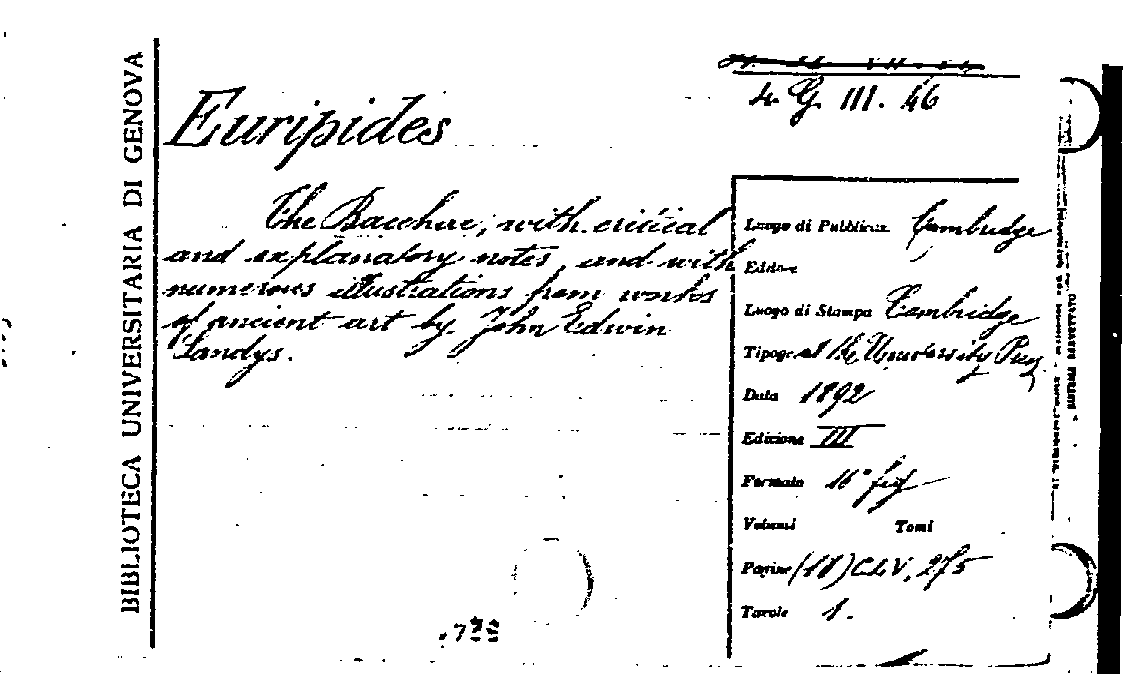 BIBLIOTECA UNIVERSITARIA DI GENOVA
4. G. III. 46
Euripides
The Bacchae, with critical
and explanatory notes, and with
numerous illustrations from works
of ancient art by John Edwin
Sandys.
Luogo di Pubblicaz. Cambridge
Editore
Luogo di Stampa Cambridge
Tipogr. at the University Press
Data 1892
Edizione III
Formato 16° fig
Volumi Tomi
Pagine (11) CLV, 275
Tavole 1.